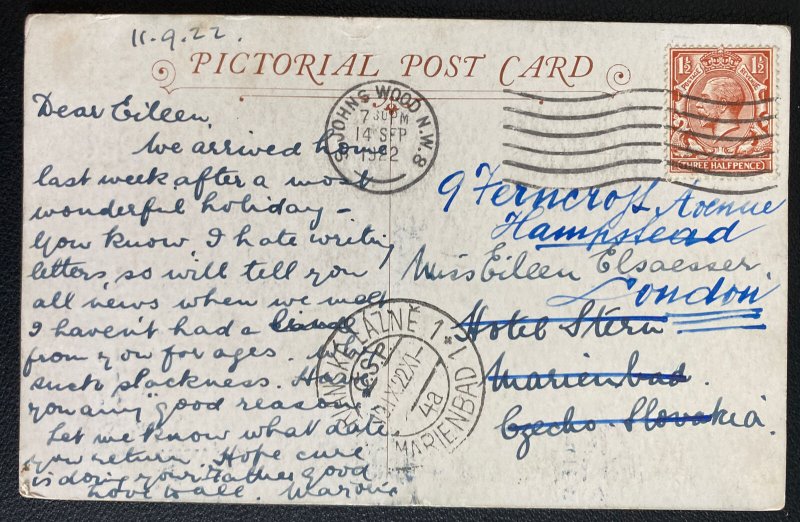 11.9.22.
PICTORIAL POST CARD
Dear Eileen,
We arrived home
last week after a most
wonderful holiday –
You know, I hate writing
letters, so will tell you
all news when we meet
I haven't had a
from you for ages.
such slackness. Have
you any "good reason
Let me know what date
you return. Hope cure
is doing your Father good
Love to all.
ST JOHNS WOOD N.W.8
7 30PM
14 SEP
1922
1½ 1½
POSTAGE REVENUE
THREE HALFPENCE
9 Ferncroft Avenue
Hampstead
Miss Eileen Elsaesser.
London
Hotel Stern
Marienbad.
Czecho-Slovakia.
MARIÁNSKÉ LÁZNĚ 1
ČSP
22.XI-
4a
MARIENBAD 1